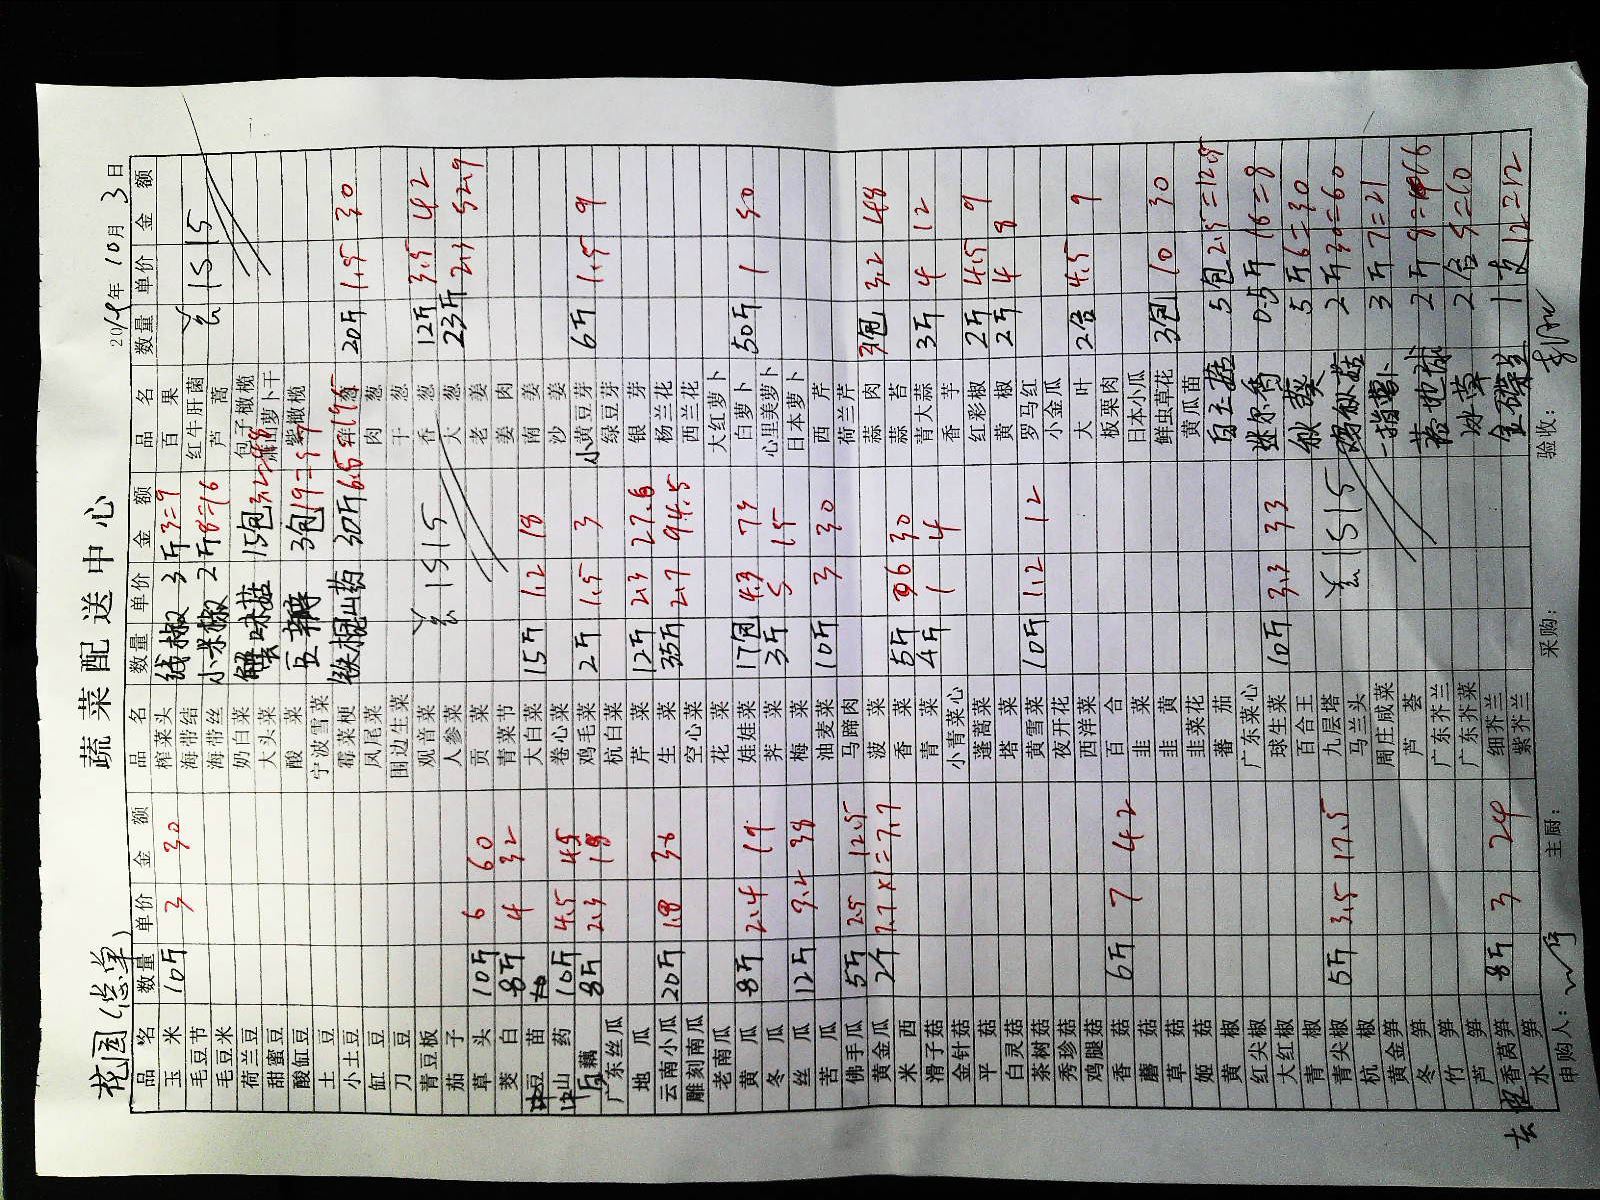 蔬菜配送中心
花园(总单)
2019年10月3日
品名 数量 单价 金额 品名 数量 单价 金额 品名 数量 单价 金额
玉米 10斤 3 30 榨菜头 线椒 3斤 3=9 百果
毛豆节 海带结 小米椒 2斤 8=16 红牛肝菌
毛豆米 海带丝 芦蒿
荷兰豆 奶白菜 蟹味菇 15包 包子橄榄
甜蜜豆 大头菜 萝卜干
酸缸豆 酸菜 豆瓣 3包 紫橄榄
土豆 宁波雪菜
小土豆 霉菜梗 铁棍山药 30斤 6.5=195 葱 20斤 1.5 30
缸豆 凤尾菜 肉葱
刀豆 围边生菜 干葱
青豆板 观音菜 香葱 12斤 3.5 42
茄子 人参菜 大葱 23斤 2.3 52.9
草头 10斤 6 60 贡菜 老姜
茭白 8斤 4 32 青菜节 姜肉
豆苗 大白菜 15斤 1.2 18 南姜
山药 10斤 4.5 45 卷心菜 沙姜
藕 8斤 2.3 18 鸡毛菜 2斤 1.5 3 小黄豆芽 6斤 1.5 9
广东丝瓜 杭白菜 绿豆芽
地瓜 芹菜 12斤 2.3 27.6 银芽
云南小瓜 20斤 1.8 36 生菜 35斤 2.7 94.5 杨兰花
雕刻南瓜 空心菜 西兰花
老南瓜 花菜 大红萝卜
黄瓜 8斤 2.4 19 娃娃菜 17包 4.3 73 白萝卜 50斤 1 50
冬瓜 荠菜 3斤 5 15 心里美萝卜
丝瓜 12斤 3.2 38 梅菜 日本萝卜
苦瓜 油麦菜 10斤 3 30 西芹
佛手瓜 5斤 2.5 12.5 马蹄肉 荷兰芹
黄金瓜 2斤 7.7×1=7.7 菠菜 蒜肉 3包 3.2 48
米西 香菜 5斤 6 30 蒜苔
滑子菇 青菜 4斤 1 4 青大蒜 3斤 4 12
金针菇 小青菜心 香芋
平菇 蓬蒿菜 红彩椒 2斤 4.5 9
白灵菇 塔菜 黄椒 2斤 4 8
茶树菇 黄雪菜 10斤 1.2 12 罗马红
秀珍菇 夜开花 小金瓜
鸡腿菇 西洋菜 大叶 2合 4.5 9
香菇 6斤 7 42 百合 板栗肉
蘑菇 韭菜 日本小瓜
草菇 韭黄 鲜虫草花 3包 10 30
姬菇 韭菜花 黄瓜苗
黄椒 蕃茄 白玉菇 5包 2.5=12.5
红尖椒 广东菜心
大红椒 球生菜 10斤 3.3 33 迷尔香 0.5斤 16=8
青椒 百合王 秋葵 5斤 6=30
青尖椒 5斤 3.5 17.5 九层塔 2斤 30=60
杭椒 马兰头
黄金笋 周庄咸菜 一指萝卜 3斤 7=21
冬笋 芦荟 2斤
竹笋 广东芥兰 冰草 2合 5=10
芦笋 广东芥菜
香莴笋 8斤 3 24 细芥兰 金碟 1支 12=12
水笋 紫芥兰
申购人： 主厨： 采购： 验收：